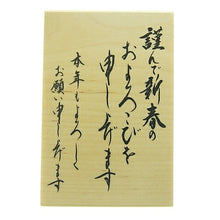 謹んで新春の
およろこびを
申し上げます
本年もよろしく
お願い申し上げます